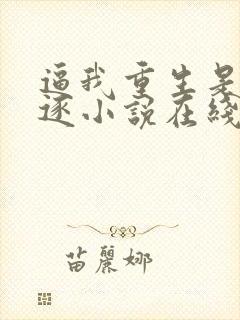 逼我重生是吧
逐小說在綫
苗麗娜